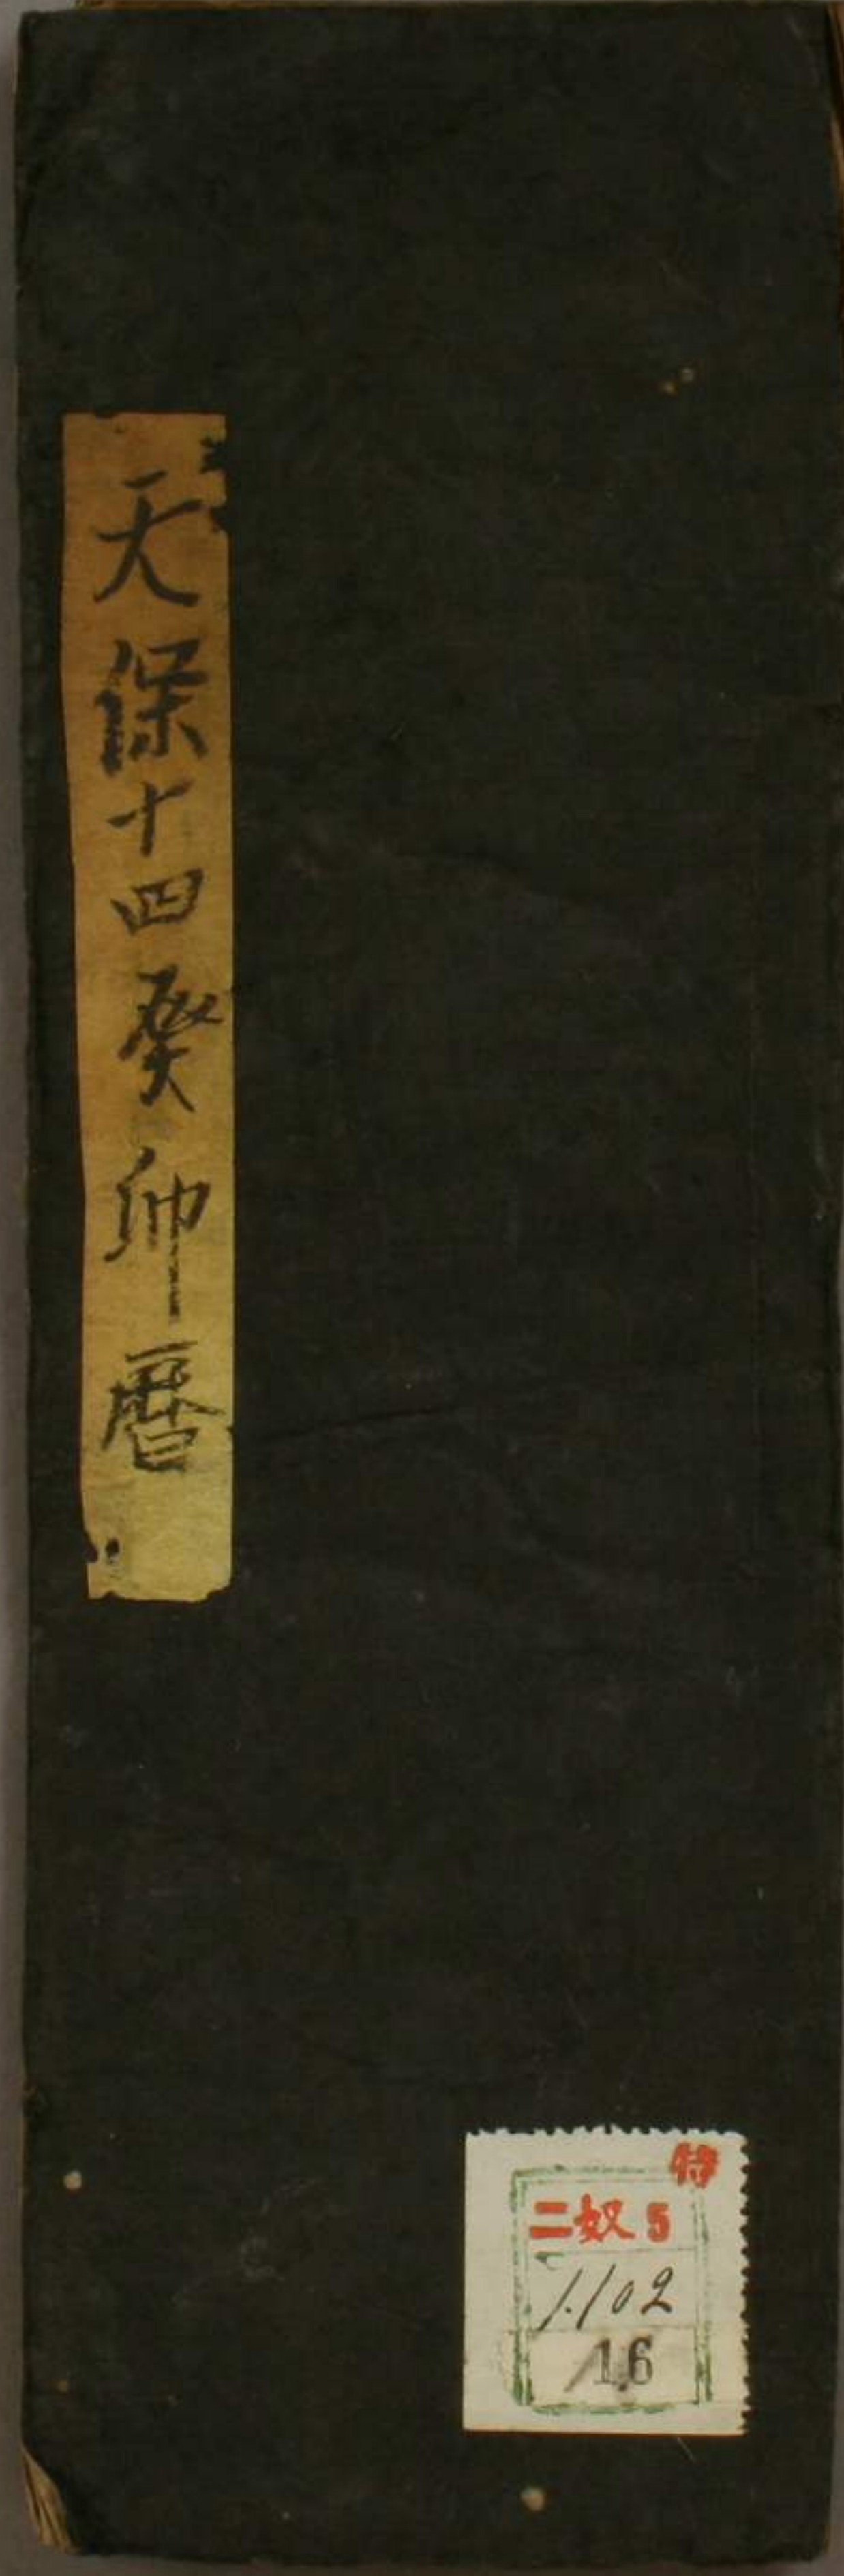 天保十四癸卯暦
特
二奴5
1.102
16